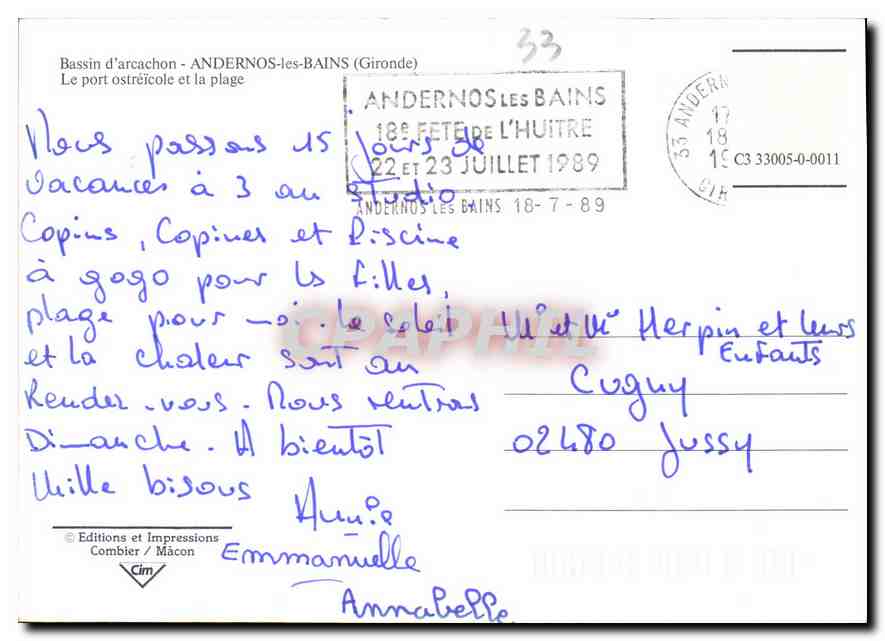 33
Bassin d'arcachon - ANDERNOS-les-BAINS (Gironde)
Le port ostréïcole et la plage
ANDERNOS LES BAINS
18e FETE DE L'HUITRE
22 ET 23 JUILLET 1989
ANDERNOS LES BAINS 18-7-89
33 ANDERN
17
18
19
GIR
C3 33005-0-0011
Nous passons 15 jours de
vacances à 3 au studio.
Copins, Copines et Piscine
à gogo pour les filles,
plage pour moi. Le soleil
et la chaleur sont au
Rendez-vous. Nous rentrons
Dimanche. A bientôt
Mille bisous
Annie
Emmanuelle
Annabelle
Mr et Me Herpin et leurs
Enfants
Cugny
02480 Jussy
CPAPHIL
© Editions et Impressions
Combier / Mâcon
Cim